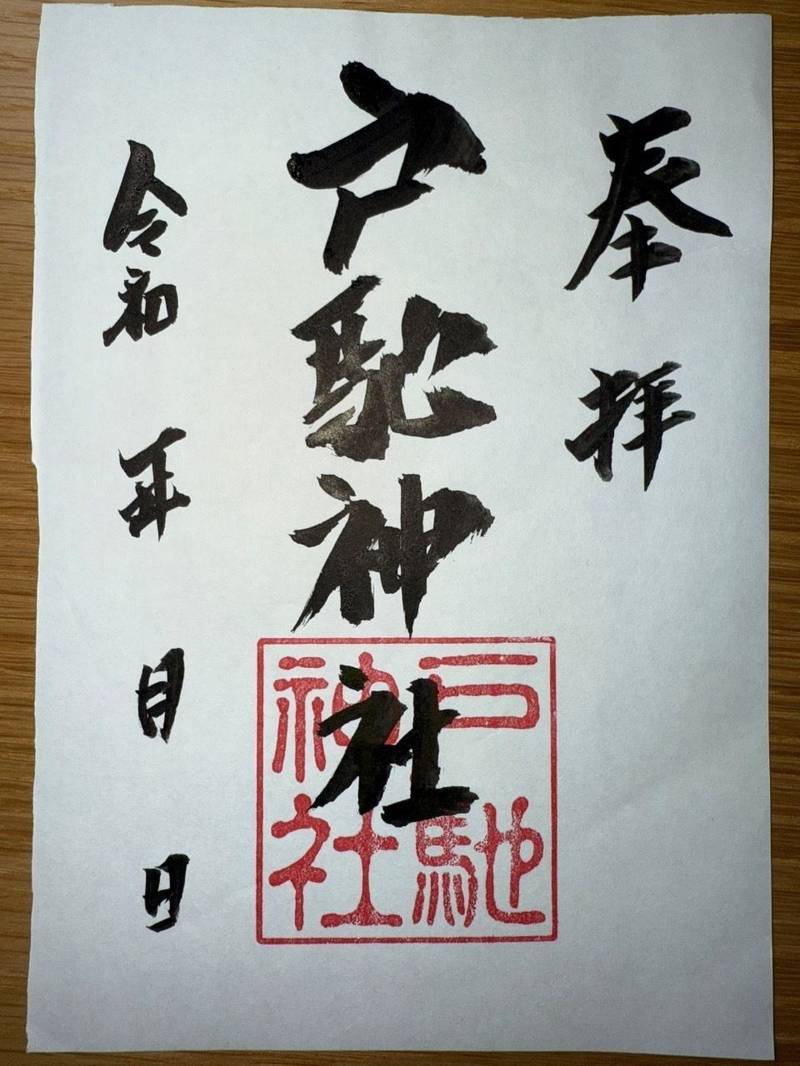 奉拝
戸馳神社
戸馳
神社
令和 年 月 日